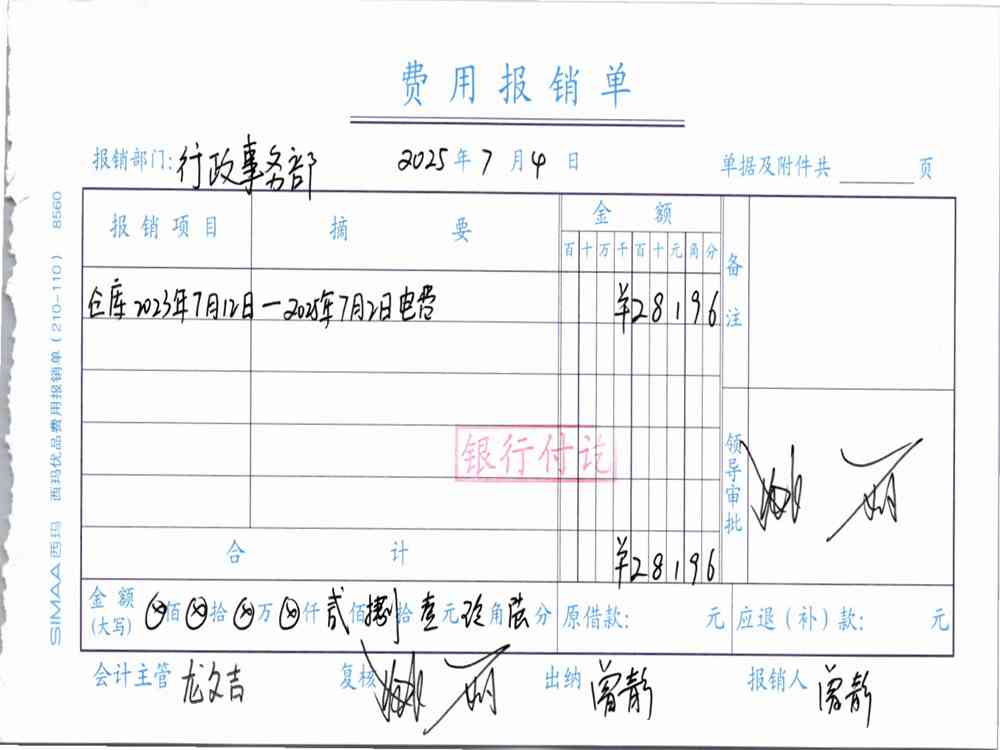 费用报销单
报销部门:行政事务部 2025年7月4日 单据及附件共 页
报销项目 摘要 金额 备注
百十万千百十元角分
仓库2023年7月12日—2025年7月2日电费 ¥28196
银行付讫
领导审批
合计 ¥28196
金额(大写) ⊗佰⊗拾⊗万⊗仟贰佰捌拾壹元玖角陆分 原借款: 元 应退(补)款: 元
会计主管 龙文吉 复核 出纳 曾静 报销人 曾静
SIMAA西玛 西玛优品费用报销单(210-110) 8560